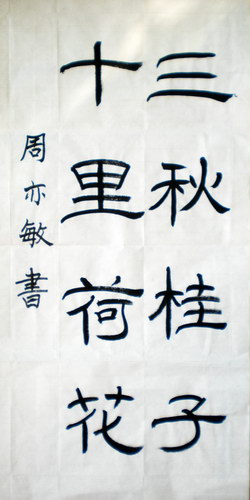 三秋桂子
十里荷花
周亦敏書